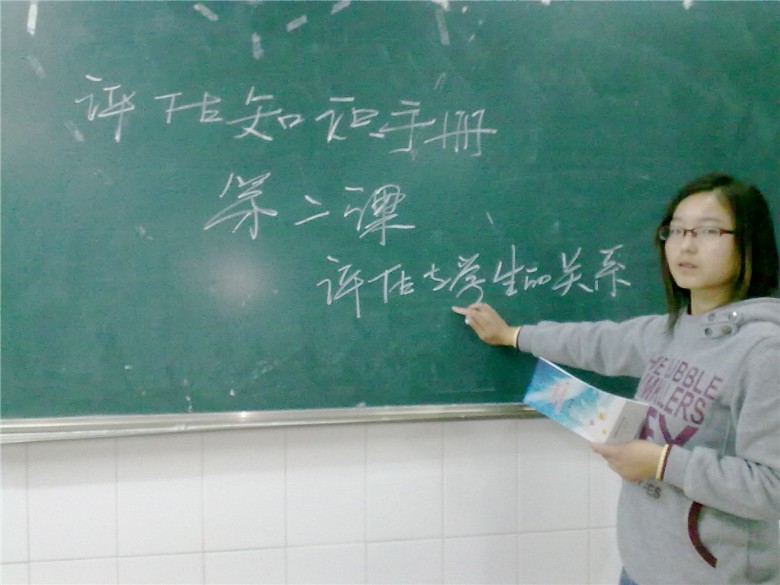 评估知识手册
第二课
评估与学生的关系
HE UBBLE